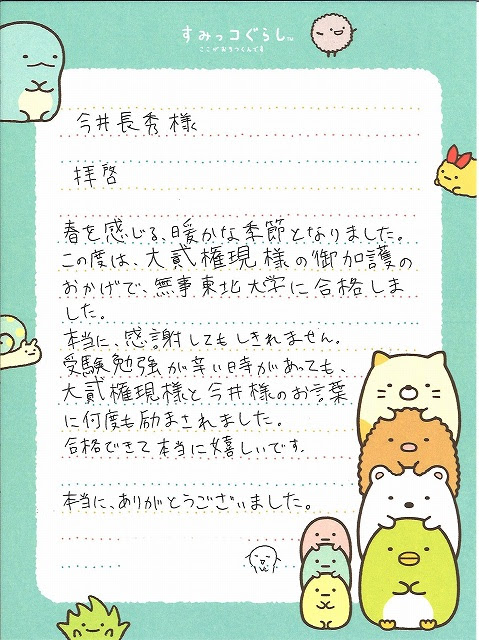 すみっコぐらし™
ここがおちつくんです
今井長秀様
拝啓
春を感じる、暖かな季節となりました。
この度は、大貳権現様の御加護の
おかげで、無事東北大学に合格しま
した。
本当に、感謝してもしきれません。
受験勉強が辛い時があっても、
大貳権現様と今井様のお言葉
に何度も励まされました。
合格できて本当に嬉しいです。
本当に、ありがとうございました。